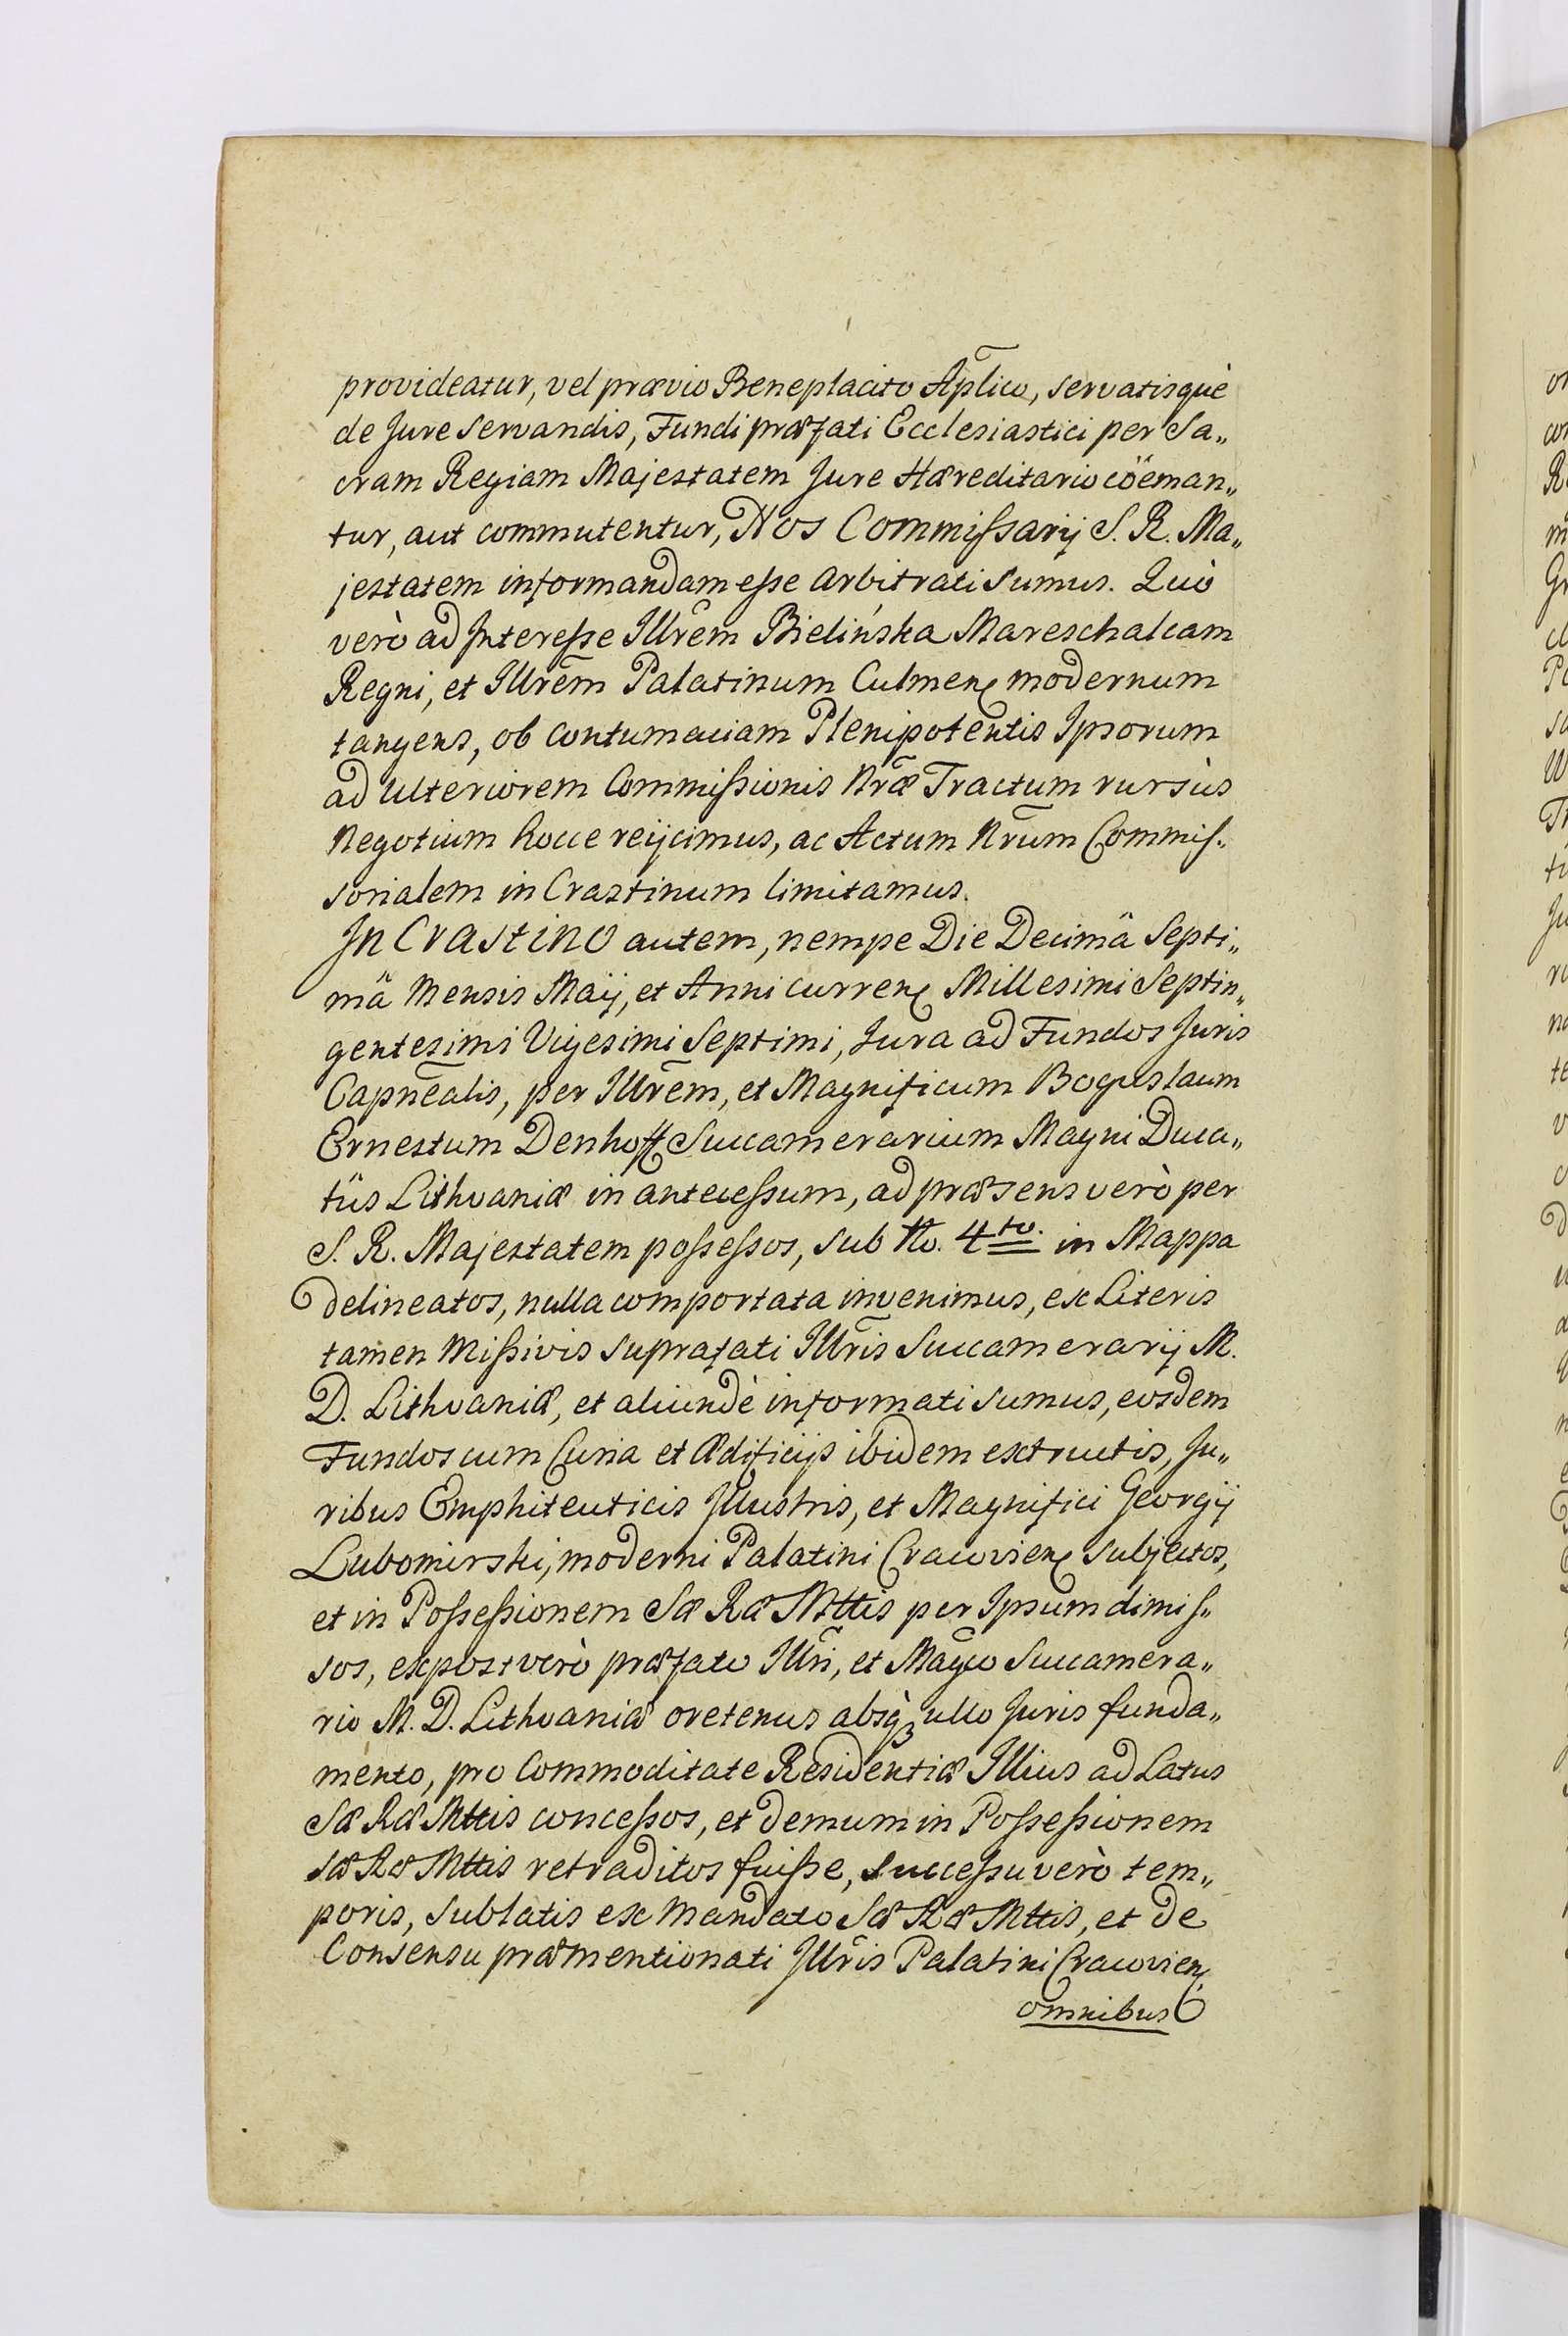 provideatur, vel prævio Beneplacito Aplico, servatisquè
de Jure servandis, Fundi præfati Ecclesiastici per Sa„
cram Regiam Majestatem Jure Hæreditario cöeman„
tur, aut commutentur, Nos Commissarij S. R. Ma„
jestatem informandam esse arbitrati sumus. Quò
verò ad Interesse Illrem Bielińska Mareschalcam
Regni, et Illrem Palatinum Culmen modernum
tangens, ob contumaciam Plenipotentis Ipsorum
ad ulteriorem Commissionis Nræ Tractum rursùs
Negotium hocce reijcimus, ac Actum Nrum Commis„
sorialem in Crastinum limitamus.
In Crastino autem, nempe Die Decimâ Septi„
mâ Mensis Maij, et Anni curren Millesimi Septin„
gentesimi Vigesimi Septimi, Jura ad Fundos Juris
Capnealis, per Illrem, et Magnificum Boguslaum
Ernestum Denhoff Succamerarium Magni Duca„
tüs Lithvaniæ in antecessum, ad præsens verò per
S. R. Majestatem possessos, sub No. 4to. in Mappa
delineatos, nulla comportata invenimus, ex Literis
tamen Missivis suprafati Illris Succamerarij M.
D. Lithvaniæ, et aliundè informati sumus, eosdem
Fundos cum Curia et Ædificijs ibidem extructis, Ju„
ribus Emphiteuticis Illustris, et Magnifici Georgij
Lubomirski, moderni Palatini Cracovien subjectos,
et in Possessionem Sæ Ræ Mttis per Ipsum dimis„
sos, expost verò præfato Illri, et Magco Succamera„
rio M. D. Lithvaniæ oretenus absq̀3 ullo Juris funda„
mento, pro Commoditate Residentiæ Illius ad Latus
Sæ Ræ Mttis concessos, et demum in Possessionem
Sæ Ræ Mttis retraditos fuisse, successu verò tem„
poris, sublatis ex Mandato Sæ Ræ Mttis, et de
Consensu præmentionati Illris Palatini Cracovien
omnibus